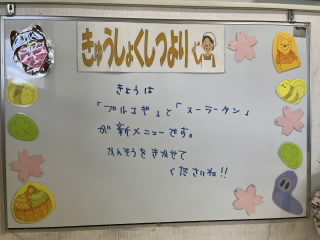 きゅうしょくしつより
きょうは
「プルコギ」と「スーラータン」
が新メニューです。
かんそうをきかせて
くださいね!!